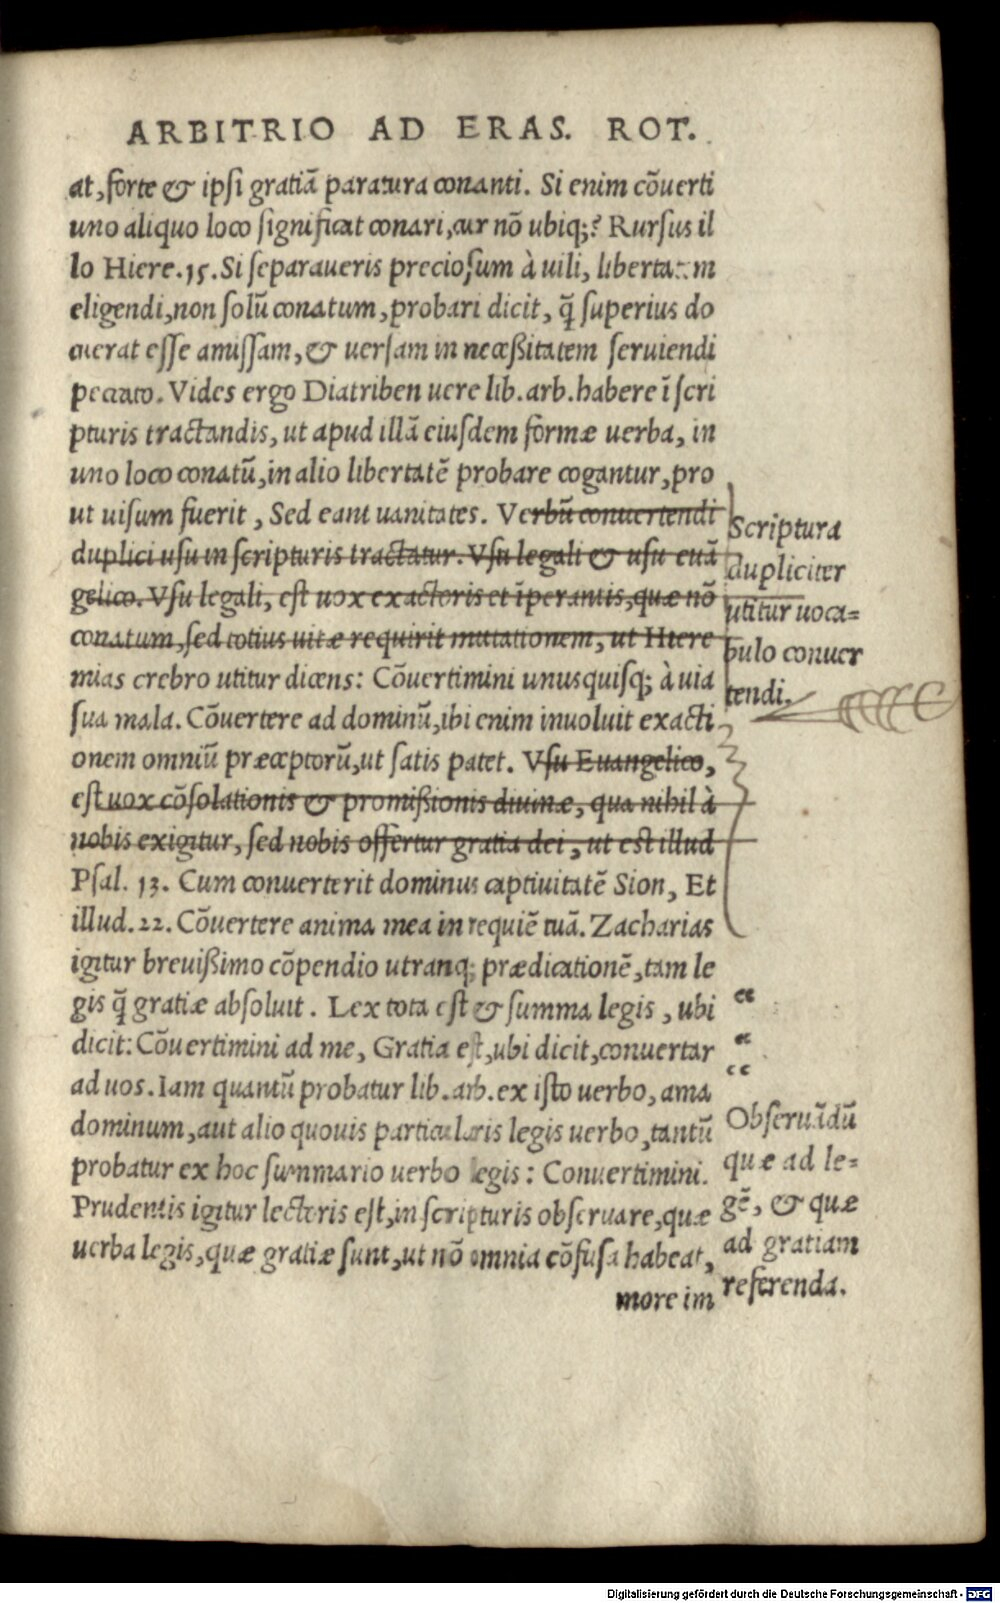 ARBITRIO AD ERAS. ROT.
at, forte & ipsi gratiã paratura conanti. Si enim cõuerti
uno aliquo loco significat conari, cur nõ ubiq;? Rursus il
lo Hiere.15. Si separaueris preciosum à uili, libertatem
eligendi, non solũ conatum, probari dicit, q̃ superius do
cuerat esse amissam, & uersam in necessitatem seruiendi
peccato. Vides ergo Diatriben uere lib. arb. habere ĩ scri
pturis tractandis, ut apud illã eiusdem formæ uerba, in
uno loco conatũ, in alio libertatẽ probare cogantur, pro
ut uisum fuerit, Sed eant uanitates. Verbũ conuertendi
duplici usu in scripturis tractatur. Vsu legali & usu euã
gelico. Vsu legali, est uox exactoris et ĩperantis, quæ nõ
conatum, sed totius uitæ requirit mutationem, ut Hiere
mias crebro utitur dicens: Cõuertimini unusquisq; à uia
sua mala. Cõuertere ad dominũ, ibi enim inuoluit exacti
onem omniũ præceptorũ, ut satis patet. Vsu Euangelico,
est uox cõsolationis & promissionis diuinæ, qua nihil à
nobis exigitur, sed nobis offertur gratia dei, ut est illud
Psal. 13. Cum conuerterit dominus captiuitatẽ Sion, Et
illud. 22. Cõuertere anima mea in requiẽ tuã. Zacharias
igitur breuissimo cõpendio utranq; prædicationẽ, tam le
gis q̃ gratiæ absoluit. Lex tota est & summa legis, ubi
dicit: Cõuertimini ad me, Gratia est, ubi dicit, conuertar
ad uos. Iam quantũ probatur lib. arb. ex isto uerbo, ama
dominum, aut alio quouis particularis legis uerbo, tantũ
probatur ex hoc summario uerbo legis: Conuertimini.
Prudentis igitur lectoris est, in scripturis obseruare, quæ
uerba legis, quæ gratiæ sunt, ut nõ omnia cõfusa habeat,
more im
Scriptura
dupliciter
utitur uoca=
bulo conuer
tendi.
“
“
“
Obseruãdũ
quæ ad le=
gẽ, & quæ
ad gratiam
referenda.
Digitalisierung gefördert durch die Deutsche Forschungsgemeinschaft - DFG